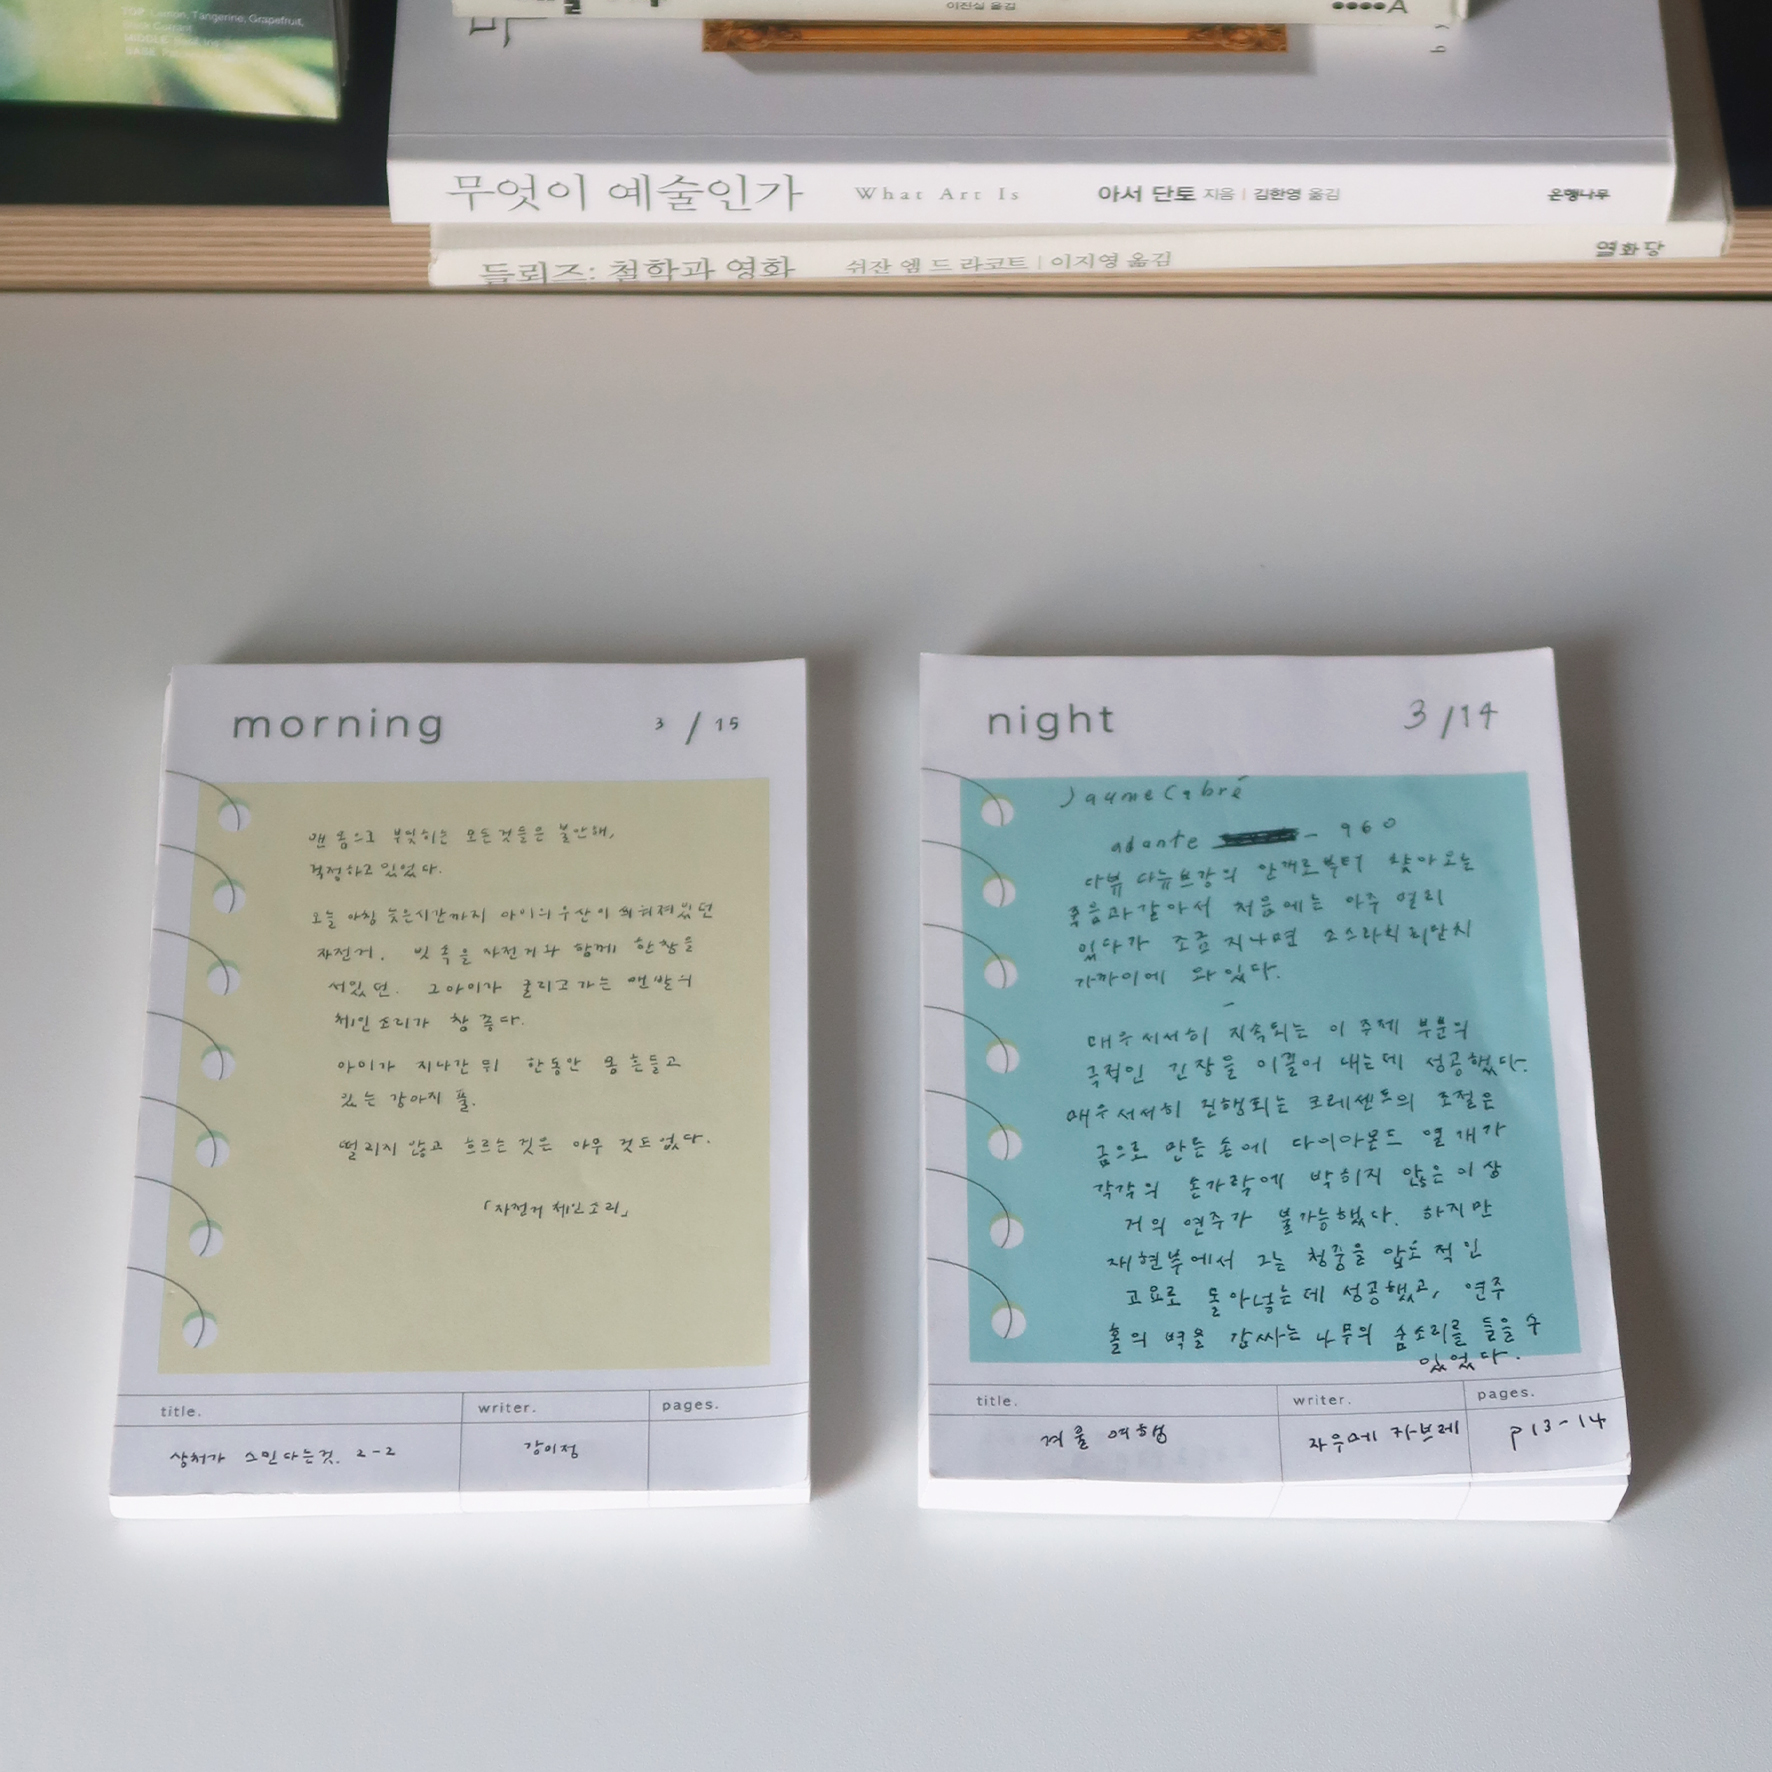 TOP. Lemon, Tangerine, Grapefruit,
이진실 옮김
A
무엇이 예술인가 What Art Is 아서 단토 지음 | 김한영 옮김 은행나무
들뢰즈: 철학과 영화 쉬잔 엠 드 라코트 | 이지영 옮김 열화당
morning 3 / 15
맨 몸으로 부딪히는 모든것들은 불안해,
걱정하고 있었다.
오늘 아침 늦은시간까지 아이의 우산이 씌워져있던
자전거. 빗 속을 자전거와 함께 한참을
서있던. 그아이가 굴리고 가는 맨발의
체인 소리가 참 좋다.
아이가 지나간 뒤 한동안 몸 흔들고
있는 강아지 풀.
떨리지 않고 흐르는 것은 아무 것도 없다.
「자전거 체인 소리」
title. writer. pages.
상처가 스민다는것. 2-2 강이정
night 3/14
Jaume Cabré
adante - 960
다뷰 다뉴브강의 안개로부터 찾아오는
죽음과 같아서 처음에는 아주 멀리
있다가 조금 지나면 소스라치리만치
가까이에 와 있다.
-
매우 서서히 지속되는 이 주제 부분의
극적인 긴장을 이끌어 내는데 성공했다.
매우 서서히 진행되는 크레센도의 조절은
금으로 만든 손에 다이아몬드 열 개가
각각의 손가락에 박히지 않은 이상
거의 연주가 불가능했다. 하지만
재현부에서 그는 청중을 압도적인
고요로 몰아넣는데 성공했고, 연주
홀의 벽을 감싸는 나무의 숨소리를 들을 수
있었다.
title. writer. pages.
겨울 여행 자우메 카브레 p13-14